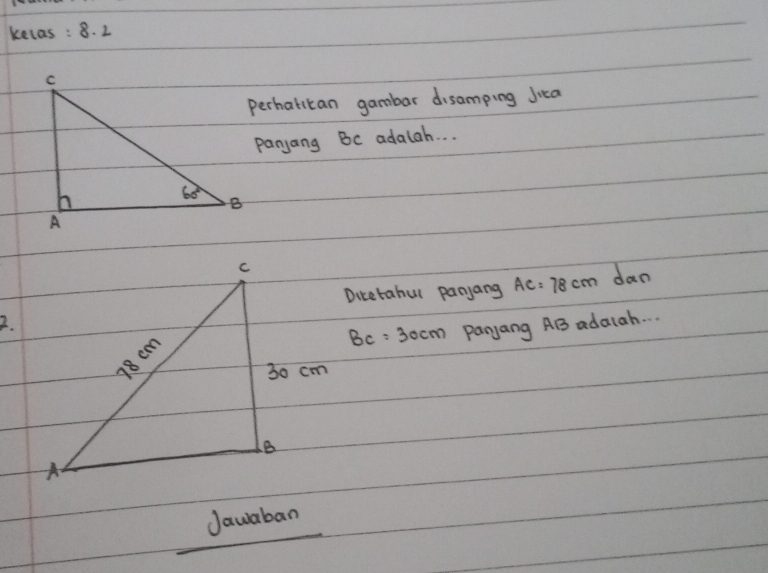 Kelas : 8.2
C
Perhatikan gambar disamping Jika
Panjang BC adalah...
60°
A
B
2.
C
Diketahui panjang AC = 78 cm dan
BC = 30cm panjang AB adalah...
78 cm
30 cm
A
B
Jawaban